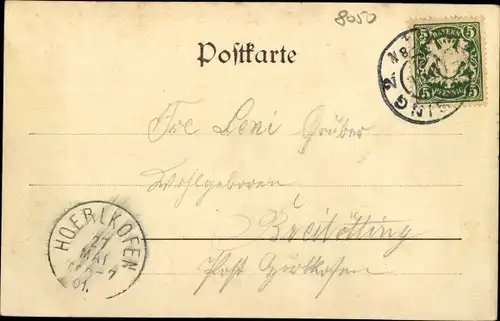 8050
Postkarte
5 BAYERN 5
5 PFENNIG 5
ING 2
Frl Leni Gruber
Wohlgeboren
Breitötting
Post Hörlkofen
HOERLKOFEN
27
MAI
01.